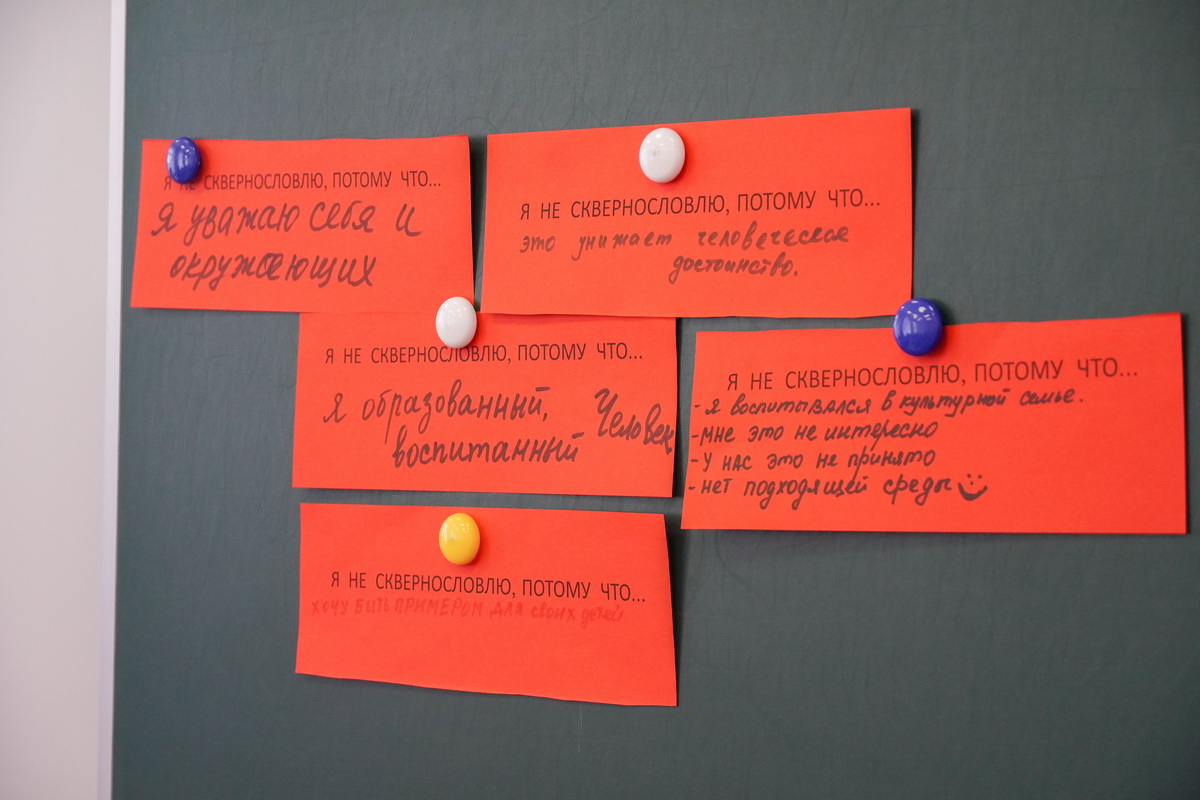 Я НЕ СКВЕРНОСЛОВЛЮ, ПОТОМУ ЧТО...
Я уважаю себя и
окружающих
Я НЕ СКВЕРНОСЛОВЛЮ, ПОТОМУ ЧТО...
это унижает человеческое
достоинство.
Я НЕ СКВЕРНОСЛОВЛЮ, ПОТОМУ ЧТО...
Я образованный, Человек
воспитанный
Я НЕ СКВЕРНОСЛОВЛЮ, ПОТОМУ ЧТО...
- Я воспитывался в культурной семье.
- мне это не интересно
- У нас это не принято
- нет подходящей среды
Я НЕ СКВЕРНОСЛОВЛЮ, ПОТОМУ ЧТО...
хочу быть примером для своих детей